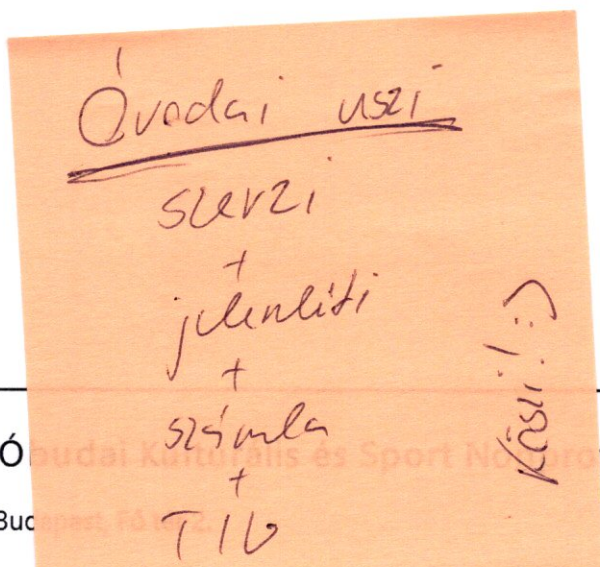 Óvodai uszi
szerzi
+
jelenléti
+
számla
+
TIG
Köszi! :)
Óbudai Kulturális és Sport Nonpro
Budapest, Fő tér 2.